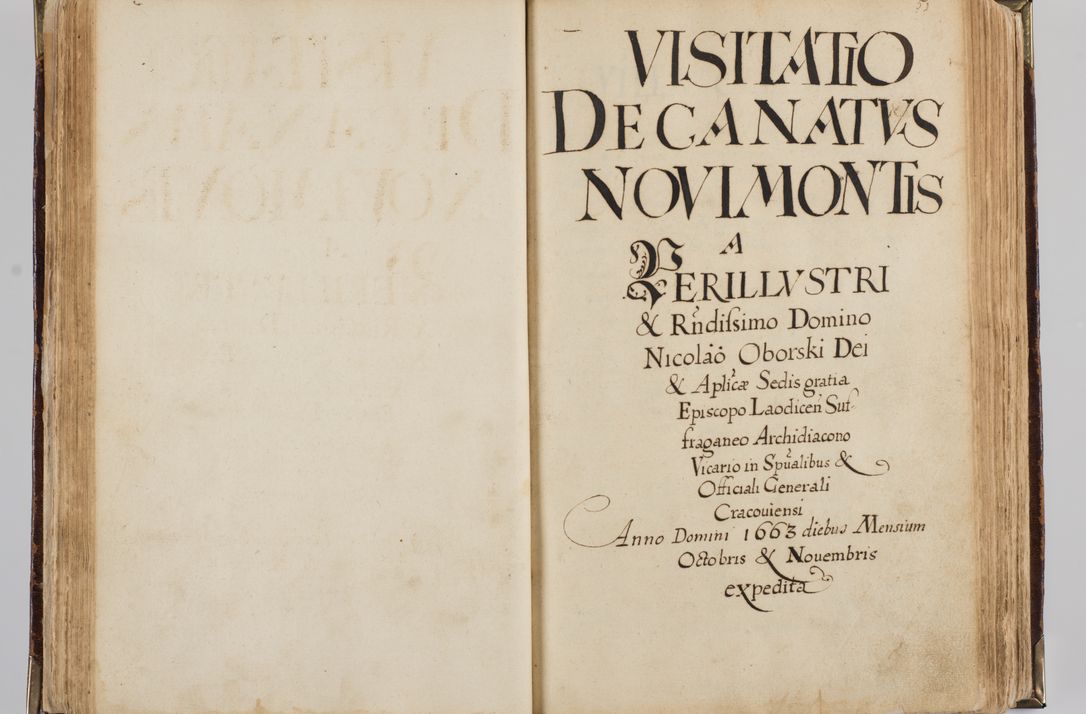 VISITATIO
DECANATVS
NOVIMONTIS
A
PERILLVSTRI
& Rñdissimo Domino
Nicolaò Oborski Dei
& Aplicæ Sedis gratia
Episcopo Laodiceñ Suf-
fraganeo Archidiacono
Vicario in Spũalibus &
Officiali Generali
Cracouiensi
Anno Domini 1663 diebus Mensium
Octobris & Nouembris
expedita